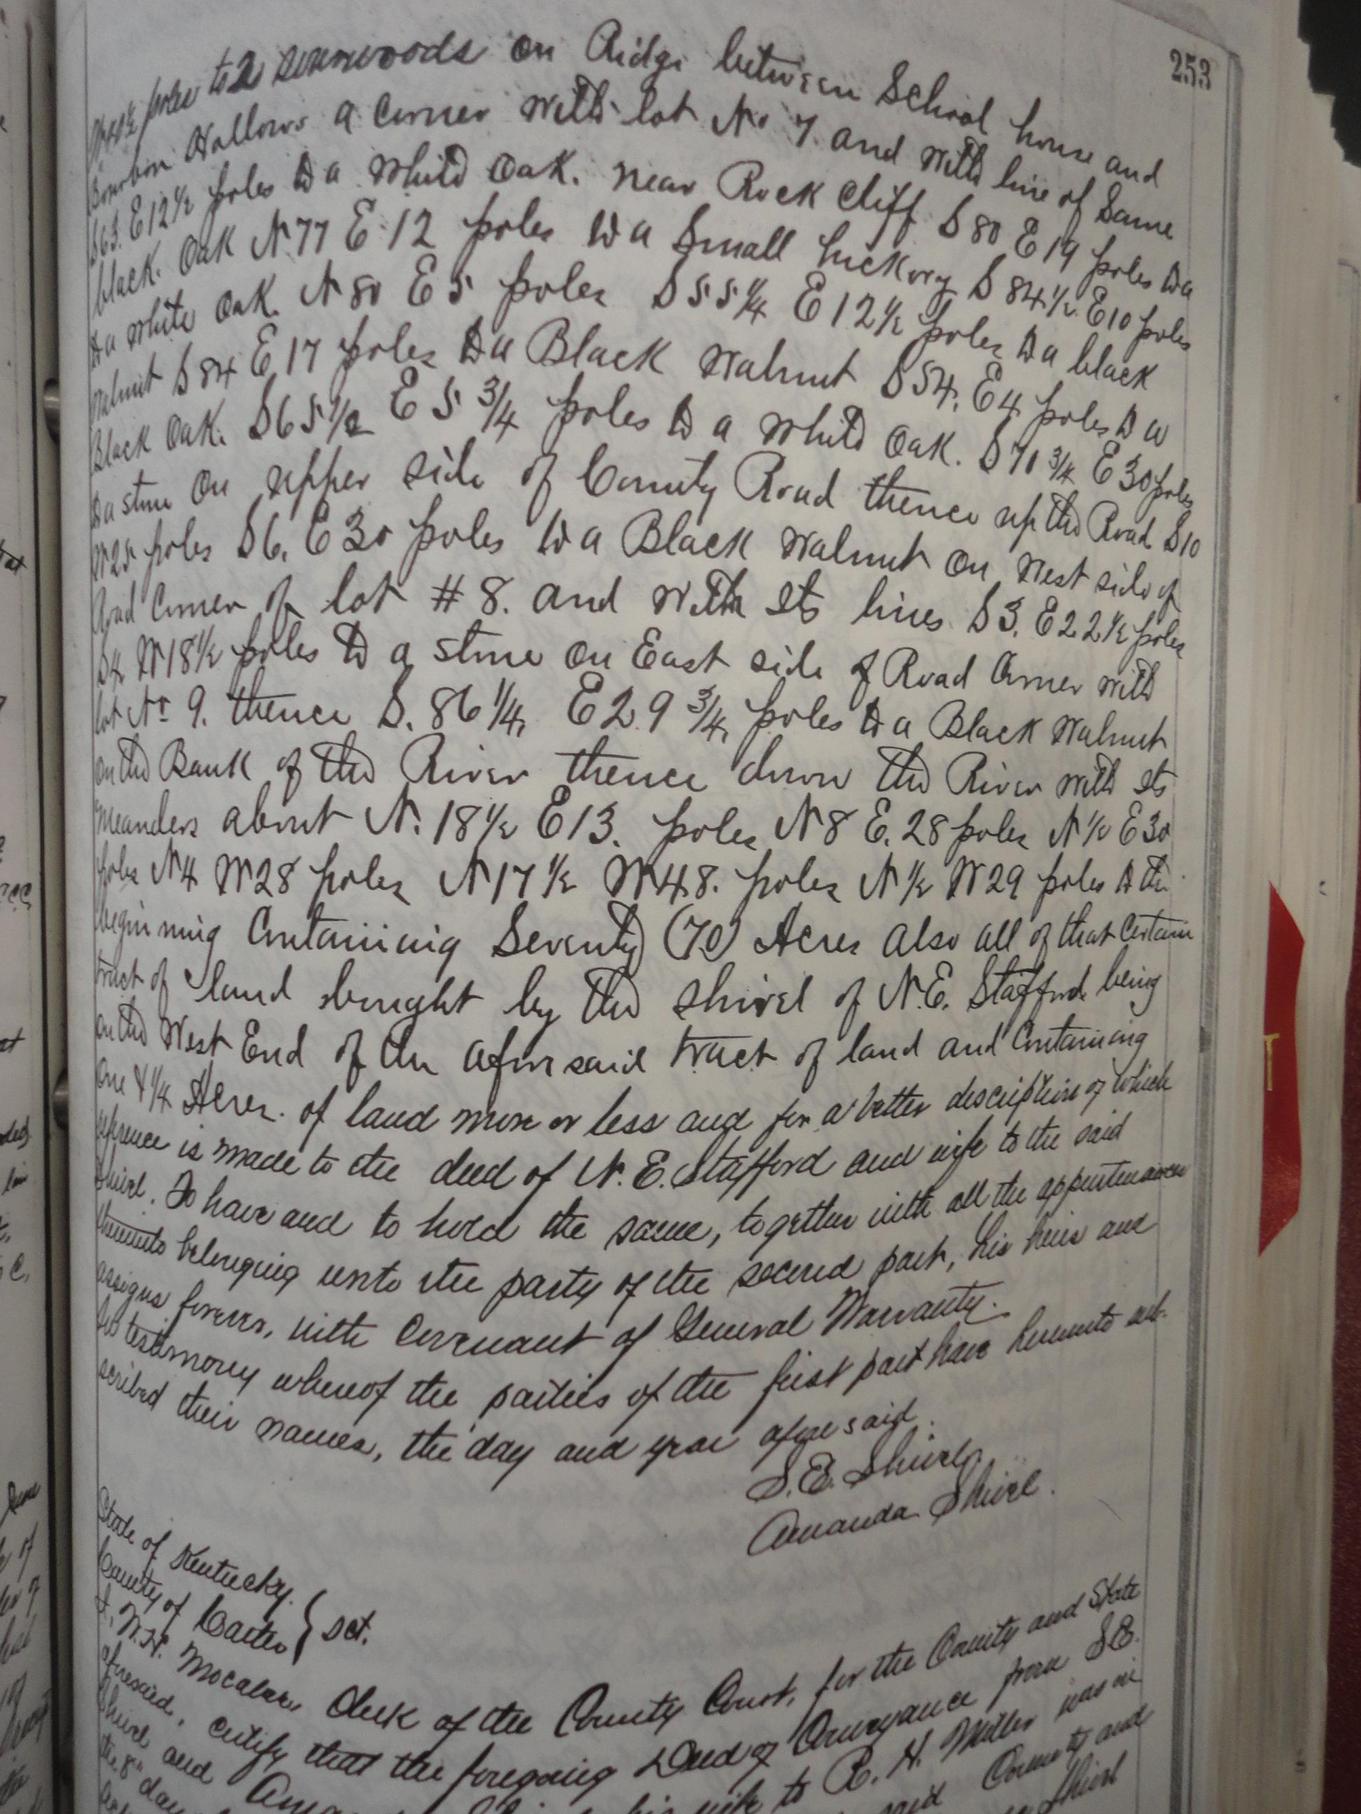 253
poles to 2 sourwoods on Ridge between School house and
Bourbon Hollows a Corner with lot No 7. and with line of Same
S63. E12½ poles to a white oak. near Rock Cliff S 80 E 19 poles to a
black. Oak N 77 E 12 poles to a Small hickory S 84½ E10 poles
to a white oak. N 80 E 5 poles S 55¼ E 12½ poles to a black
walnut S 84 E 17 poles to a Black walnut S 54. E 4 poles to a
Black oak. S65½ E 5 ¾ poles to a white oak. S 70 ¾ E 30 poles
to a stone on upper side of County Road thence up the Road S10
W25 poles S6. E 30 poles to a Black walnut on West side of
Road Corner of lot # 8. and with its lines S 3. E 22½ poles
S4 W18½ poles to a stone on East side of Road Corner with
lot No 9. thence S. 86¼ E29 ¾ poles to a Black walnut
on the Bank of the River thence down the River with its
meanders about N. 18½ E13. poles N8 E. 28 poles N½ E 30
poles N4 W28 poles N17½ W48. poles N½ W29 poles to the
beginning Containing Seventy (70) Acres also all of that Certain
tract of land bought by the Shivel of N.E. Stafford being
on the West End of the aforesaid tract of land and Containing
one & ¼ Acres. of land more or less and for a better description of which
reference is made to the deed of N. E. Stafford and wife to the said
Shivel. To have and to hold the same, together with all the appurtenances
thereunto belonging unto the party of the second part, his heirs and
assigns forever, with Covenant of General Warranty.
In testimony whereof the parties of the first part have hereunto sub-
scribed their names, the day and year aforesaid.
S. E. Shivel
Amanda Shivel.
State of Kentucky.
County of Carter } Sct.
I, Clerk of the County Court, for the County and State
aforesaid, certify that the foregoing Deed of Conveyance from S.E.
Shivel and his wife to R. H. Miller was on
the 8th day said County and
Shivel